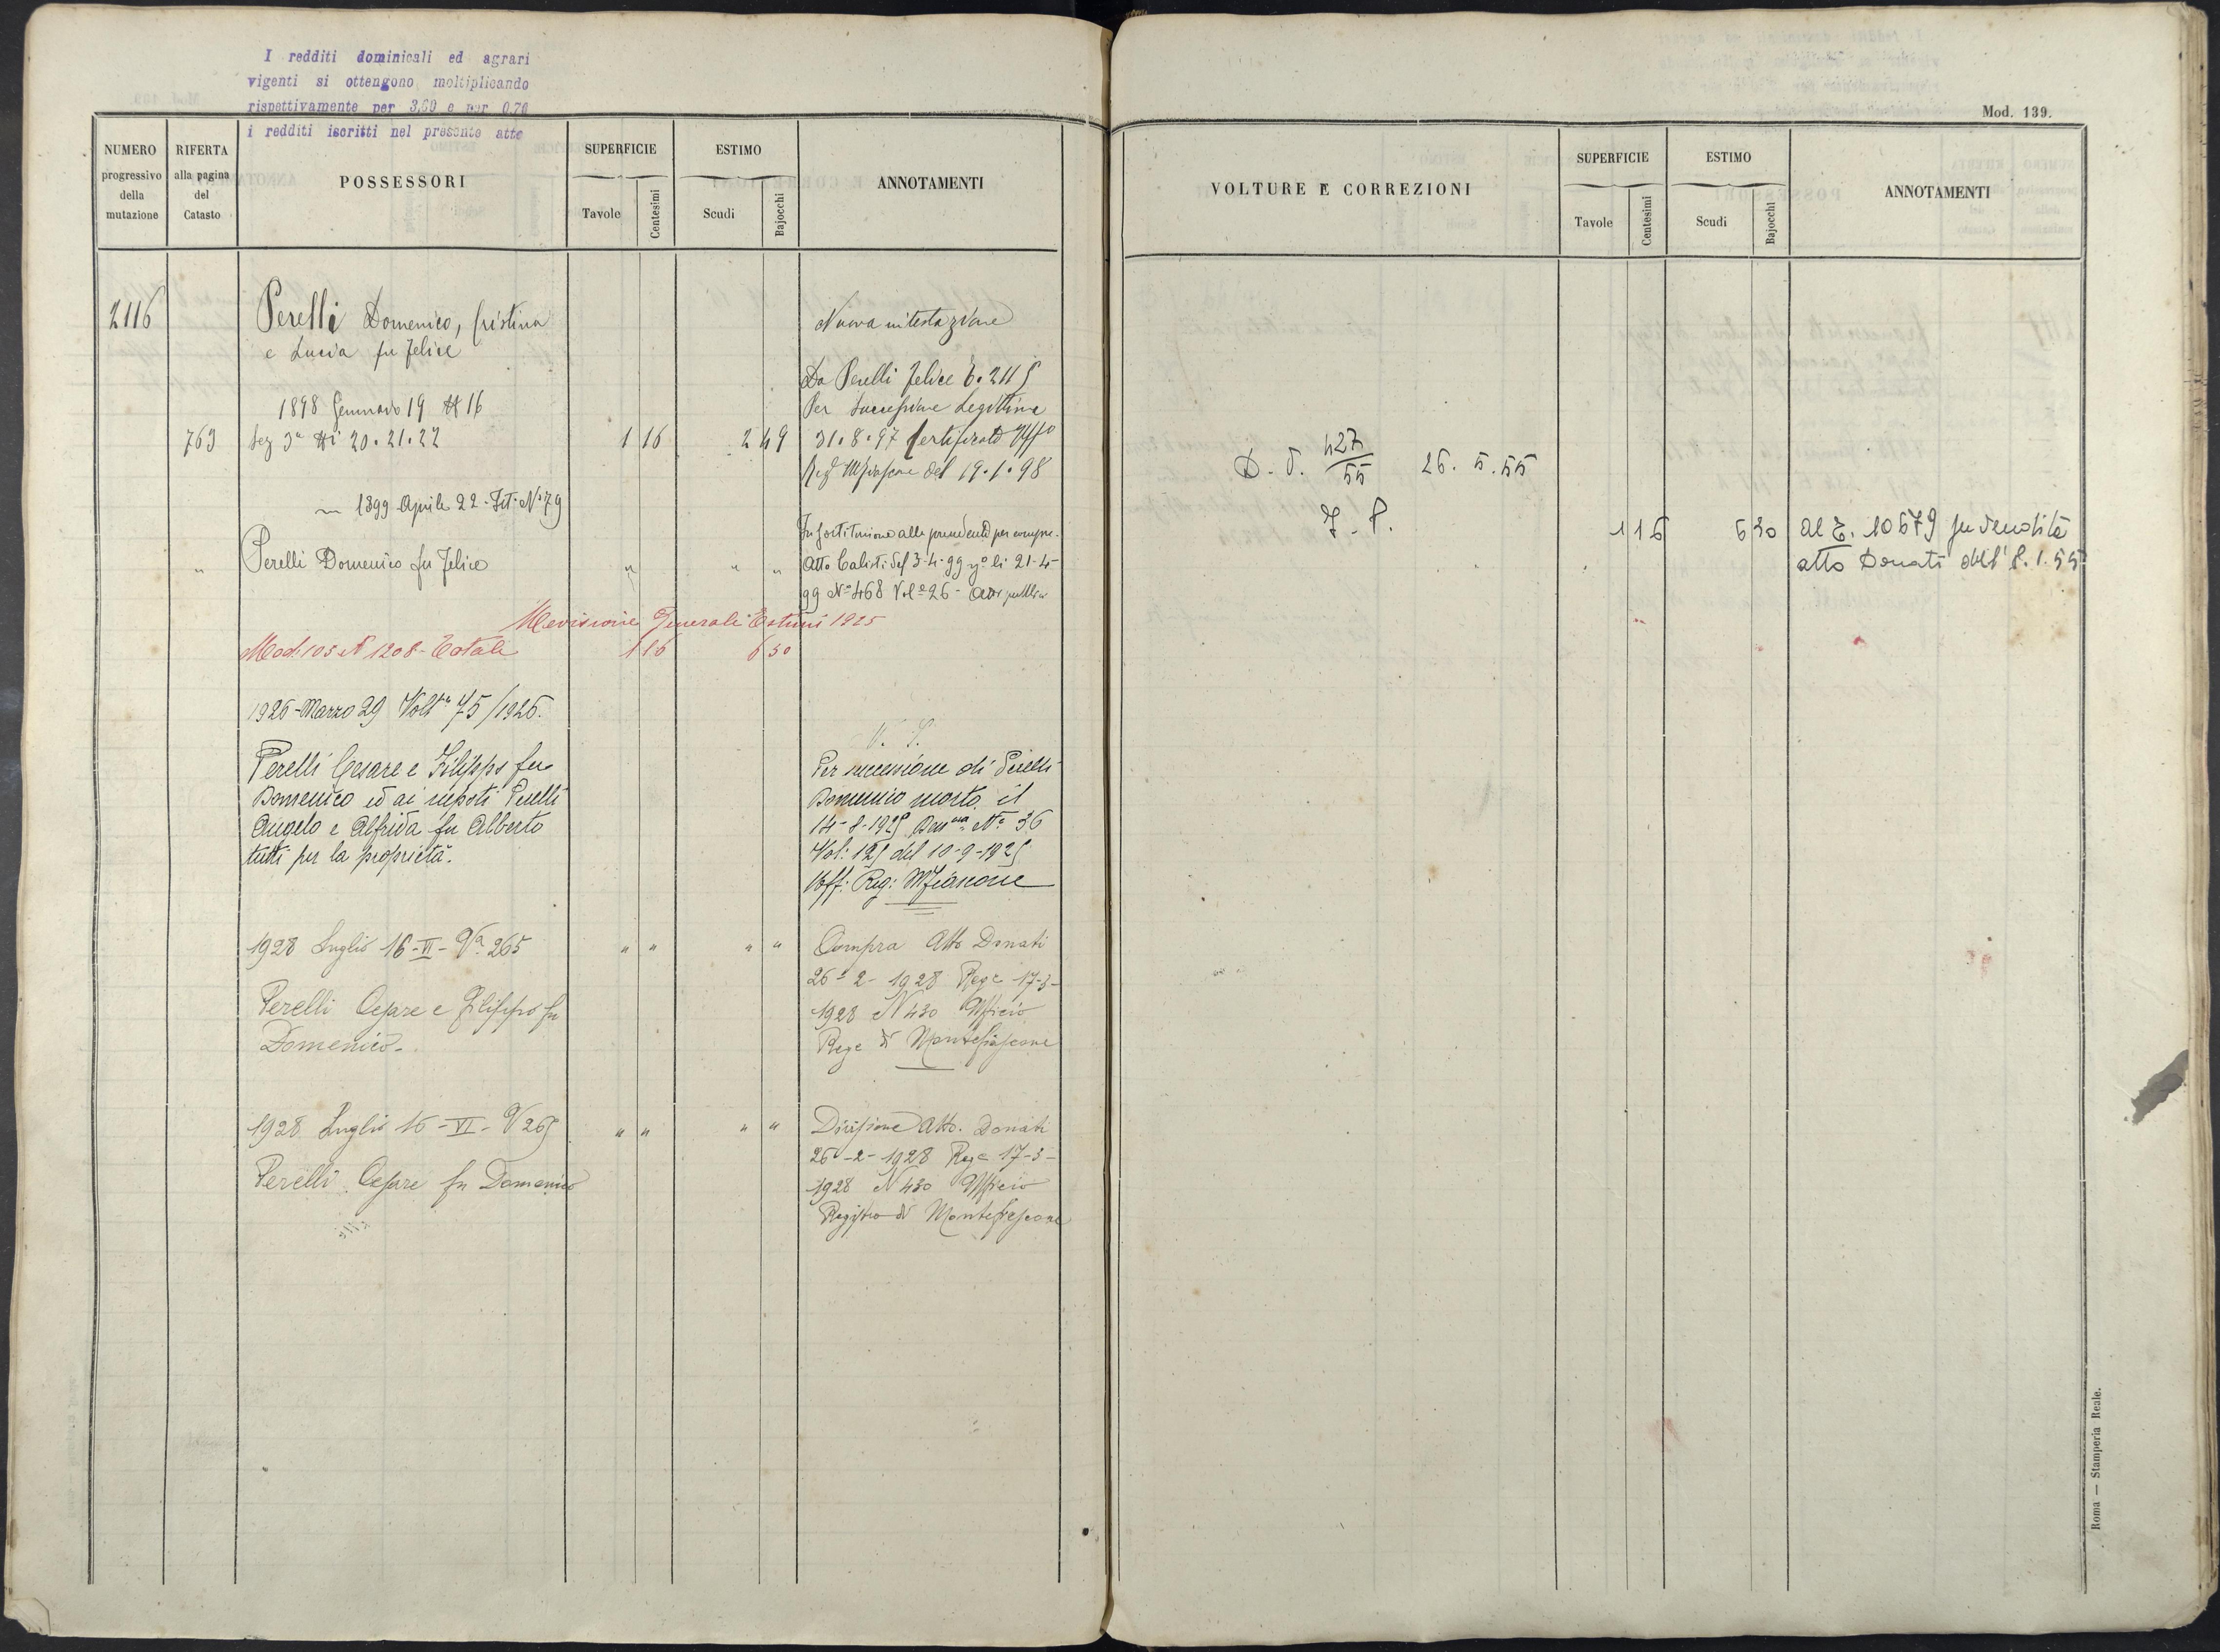 I redditi dominicali ed agrari
vigenti si ottengono moltiplicando
rispettivamente per 3,60 e per 0,76
i redditi iscritti nel presente atto
NUMERO
progressivo
della
mutazione
RIFERTA
alla pagina
del
Catasto
POSSESSORI
SUPERFICIE
Tavole
Centesimi
ESTIMO
Scudi
Bajocchi
ANNOTAMENTI
2116
Perelli Domenico, Cristina
e Lucia fu Felice
1898 Gennaro 19 N 16
763 Sez 3ª Ni 20.21.22 1 16 2 49
Nuova intestazione
Da Perelli Felice T. 2115
Per Successione Legittima
31.8.97 Certificato Uffo
del 19.1.98
1899 Aprile 22 - N: 79
" Perelli Domenico fu Felice " " "
In sostituzione alla precedente per
Atto Calisti del 3-4-99 li 21-4-
99 Nº 468 Vol º 26 - Atti pubblici
Revisione Generale Estimi 1925
Mod: 103 N 1208 - Totale 1 16 6 30
1926 - Marzo 29 Volta 75/1926.
Perelli Cesare e Filippo fu
Domenico ed ai nipoti Perelli
Angelo e Alfrida fu Alberto
tutti per la proprietà.
Per successione di Perelli
Domenico morto il
14-8-1925 Nº 36
Vol: 125 del 10-9-1925
Uff: Reg: Mfiascone
1928 Luglio 16-VI- Va 265 " " " "
Perelli Cesare e Filippo fu
Domenico -
Compra Atto Donati
26-2-1928 Rege 17-3-
1928 N 430 Ufficio
Rege di Montefiascone
1928 Luglio 16-VI- V 265 " " " "
Perelli Cesare fu Domenico
Divisione Atto. Donati
26-2-1928 Rege 17-3-
1928 N 430 Ufficio
Registro di Montefiascone
Mod. 139.
VOLTURE E CORREZIONI
SUPERFICIE
Tavole
Centesimi
ESTIMO
Scudi
Bajocchi
ANNOTAMENTI
D. V. 427/55 26.5.55
1 16 6 30 al T. 10679 per vendita
atto Donati dell' 8.1.55
Roma — Stamperia Reale.